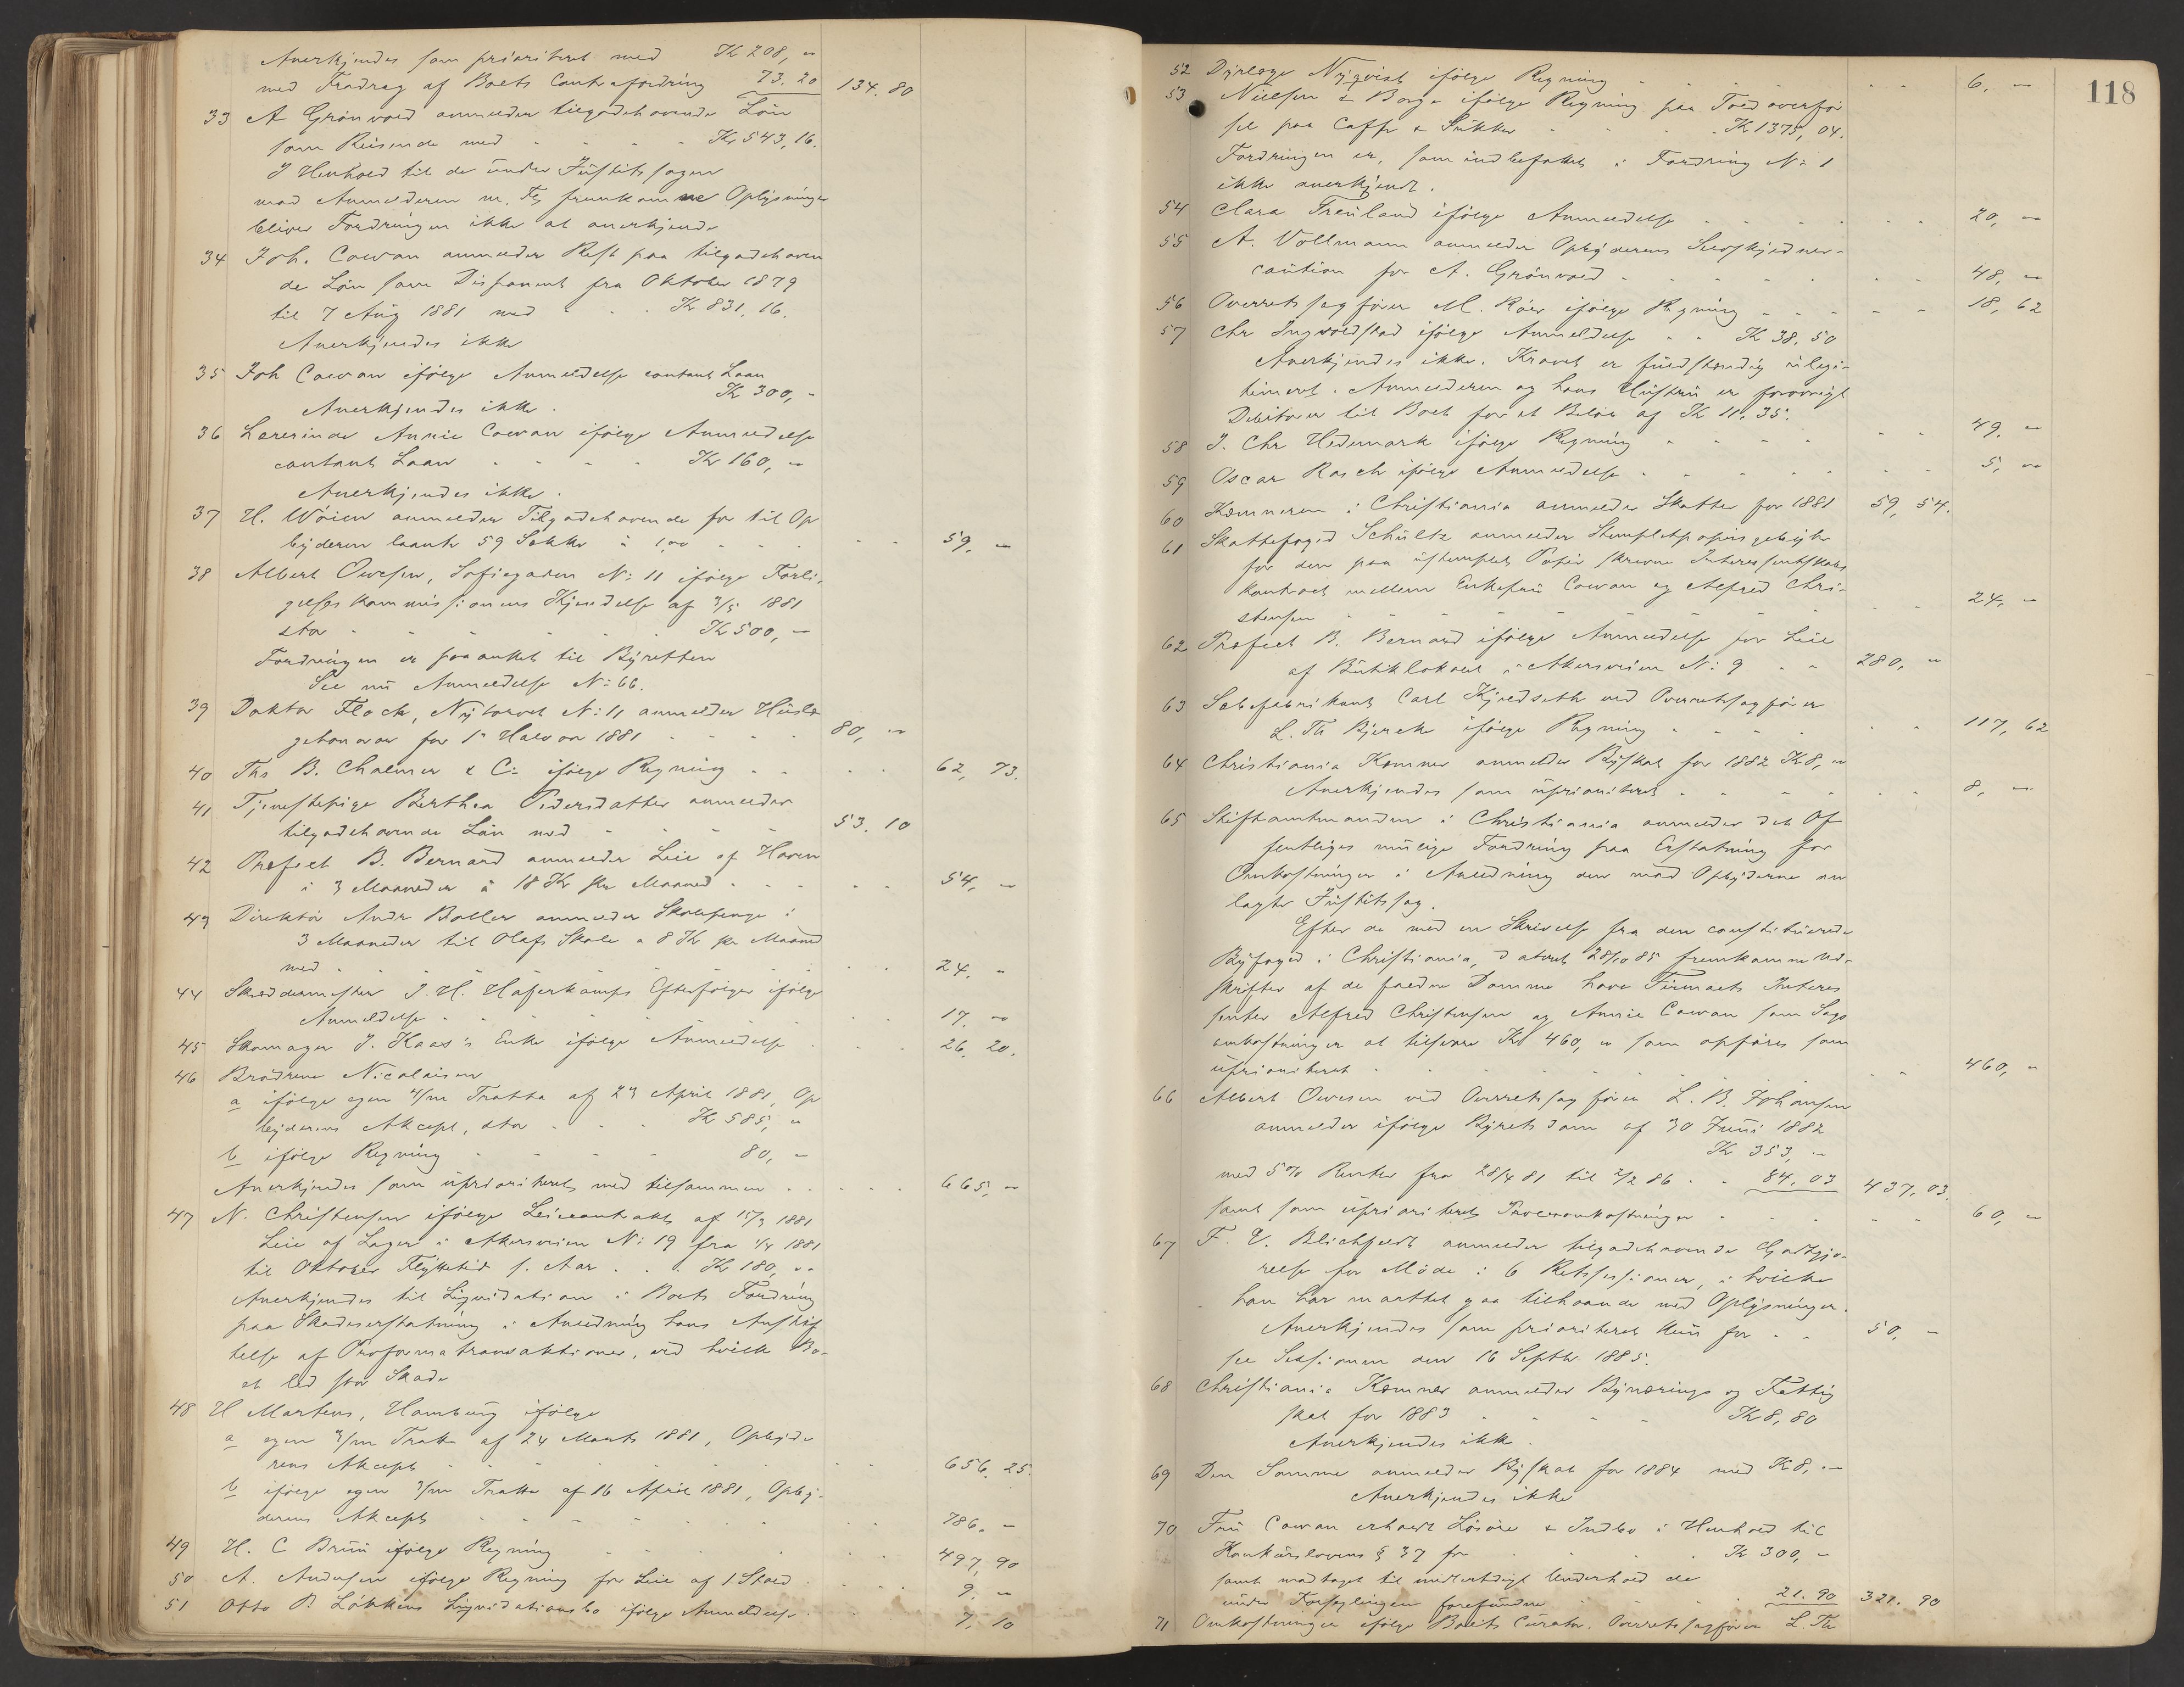 Anerkjendes som prioriteret med Kr 208, „
med Fradrag af Boets Contrafordring 73. 20 134. 80
33 A Grönvold anmelder tilgodehavende Lön
som Reisende med - - - - Kr 543, 16.
I Henhold til de under Justitssagen
mod Anmelderen m. Fl. fremkomne Oplysninger
bliver Fordringen ikke at anerkjende
34 Joh. Cowan anmelder Rest paa tilgodehaven
de Lön som Disponent fra Oktober 1879
til 7 Aug 1881 med - - - Kr 831, 16.
Anerkjendes ikke
35 Joh Cowan ifölge Anmeldelse contant Laan
Kr 300, -
Anerkjendes ikke.
36 Lærerinde Annie Cowan ifölge Anmeldelse
contant Laan - - - - Kr 160, „
Anerkjendes ikke.
37 H. Wöien anmelder Tilgodehavende for til Op
byderen laante 59 Sække à 1,00 - - - - - 59, „
38 Albert Owesen, Sofiegaden N: 11 ifölge Forli-
gelseskommissionens Kjendelse af 3/5 1881
stor - - - - - Kr 500, „
Fordringen er paaanket til Byretten
See nu Anmeldelse N: 66.
39 Doktor Flock, Nytorvet N: 11 anmelder Huslæ
gehonorar for 1ste Halvaar 1881 - - - - 80, „
40 Ths B. Chalmer & C: ifölge Regning - - - - 62, 73.
41 Tjenestepige Berthea Pedersdatter anmelder
tilgodehavende Lön med - - - - 53. 10
42 Profect B. Bernard anmelder Leie af Haven
i 3 Maaneder à 18 Kr pr Maaned - - - - - 54, „
43 Direktör Andr Boller anmelder Skolepenge i
3 Maaneder til Olafs Skole a 8 Kr pr Maaned
med - - - - - - - - 24. „
44 Skræddermester J. H. Haferkamps Efterfölger ifölge
Anmeldelse - - - - - - - 17. „
45 Skomager J. Kaas's Enke ifölge Anmeldelse - - - 26. 20.
46 Brödrene Nicolaisen
a ifölge egen 4/m Tratta af 23 April 1881, Op
byderens Akcept, stor - - - Kr 585, „
b ifölge Regning - - - - 80, „
Anerkjendes som uprioriteret med tilsammen - - - - - 665, „
47 N. Christensen ifölge Leiecontrakt af 15/3 1881
Leie af Lager i Akersveien N: 19 fra 1/4 1881
til Oktober Flyttetid s. Aar - - - Kr 180, „
Anerkjendes til Liqvidation i Boets Fordring
paa Skadeserstatning i Anledning hans Anstif
telse af Proformatransaktioner, ved hvilke Bo-
et led stor Skade
48 H Martens, Hamburg ifölge
a egen 3/m Tratta af 24 Marts 1881, Opbyde
rens Akcept - - - - - - - 656. 25.
b ifölge egen 3/m Tratta af 16 April 1881, Opby-
derens Akcept - - - - - - - 786. „
49 H. C Bruu ifölge Regning - - - - - 497, 90
50 A. Andersen ifölge Regning for Leie af 1 Stald - - - 9. „
51 Otto P. Lökkens Liqvidationsbo ifölge Anmeldelse - - 7, 10
118
52 Dyrlæge Nyqvist ifölge Regning - - - - - 6. „
53 Nielsen & Borge ifölge Regning paa Told overför
sel paa Caffe & Sukker - - - - Kr 1375, 04.
Fordringen er, som indbefattet i Fordring N: 1
ikke anerkjendt.
54 Clara Freuland ifölge Anmeldelse - - - - - 20, „
55 A. Vollmann anmelder Opbyderens Selvskyldner-
caution for A. Grönvold - - - - - - 48, „
56 Overretssagförer M. Röer ifölge Regning - - - - - 18, 62
57 Chr Ingvoldstad ifölge Anmeldelse - - Kr 38. 50
Anerkjendes ikke. Kravet er fuldstændig ulegi-
timeret. Anmelderen og hans Hustru er forövrigt
Debitorer til Boet for et Belöb af Kr 11. 35.
58 J. Chr Hedemark ifölge Regning - - - - - - 49, „
59 Oscar Rasch ifölge Anmeldelse - - - - - - 5, „
60 Kæmneren i Christiania anmelder Skatter for 1881 59, 54.
61 Skattefoged Schultz anmelder Stempletpapirsgebyhr
for den paa ustemplet Papir skrevne Interessentskabs
kontract mellem Enkefru Cowan og Alfred Chri-
stensen - - - - - - - - 24, „
62 Profect B. Bernard ifölge Anmeldelse for Leie
af Butiklokalet i Akersveien N: 9 - - 280, „
63 Sæbefabrikant Carl Kjeldseth ved Overretssagförer
L. Th Bjerck ifölge Regning - - - - - - 117, 62
64 Christiania Kæmner anmelder Byskat for 1882 Kr 8, „
Anerkjendes som uprioriteret - - - - - - 8, „
65 Stiftamtmanden i Christiania anmelder det Of
fentliges mulige Fordring paa Erstatning for
Omkostninger i Anledning den mod Opbyderne an
lagte Justitssag.
Efter de med en Skrivelse fra den constituerede
Byfoged i Christiania, dateret 28/10 85 fremkomne Ud-
skrifter af de faldne Domme have Firmaets Interes
senter Alfred Christensen og Annie Cowan som Sags
omkostninger at tilsvare Kr 460, „ som opföres som
uprioriteret - - - - - - - - 460, „
66 Albert Owesen ved Overretssagförer L. B. Johansen
anmelder ifölge Byretsdom af 30 Juni 1882
Kr 353, „
med 5% Renter fra 28/4 81 til 2/2 86 - - 84, 03 437, 03.
samt som uprioriteret Procesomkostninger - - - - - 60, „
67 F. V. Blichfeldt anmelder tilgodehavende Godtgjö-
relse for Möde i 6 Retssessioner, i hvilke
han har maattet gaa tilhaande med Oplysninger.
Anerkjendes som prioriteret kun for - - 50, „
see Sessionen den 16 Septbr 1885.
68 Christiania Kæmner anmelder Bynærings og Fattig
skat for 1883 - - - - Kr 8, 80
Anerkjendes ikke.
69 Den Samme anmelder Byskat for 1884 med Kr 8, „
Anerkjendes ikke
70 Fru Cowan erholdt Lösöre & Indbo i Henhold til
Konkurslovens § 37 for - - - Kr 300, „
samt modtaget til midlertidigt Underhold de
under Forseglingen forefundne - - - 21. 90 321. 90
71 Omkostninger ifölge Boets Curator. Overretssagförer L. Th